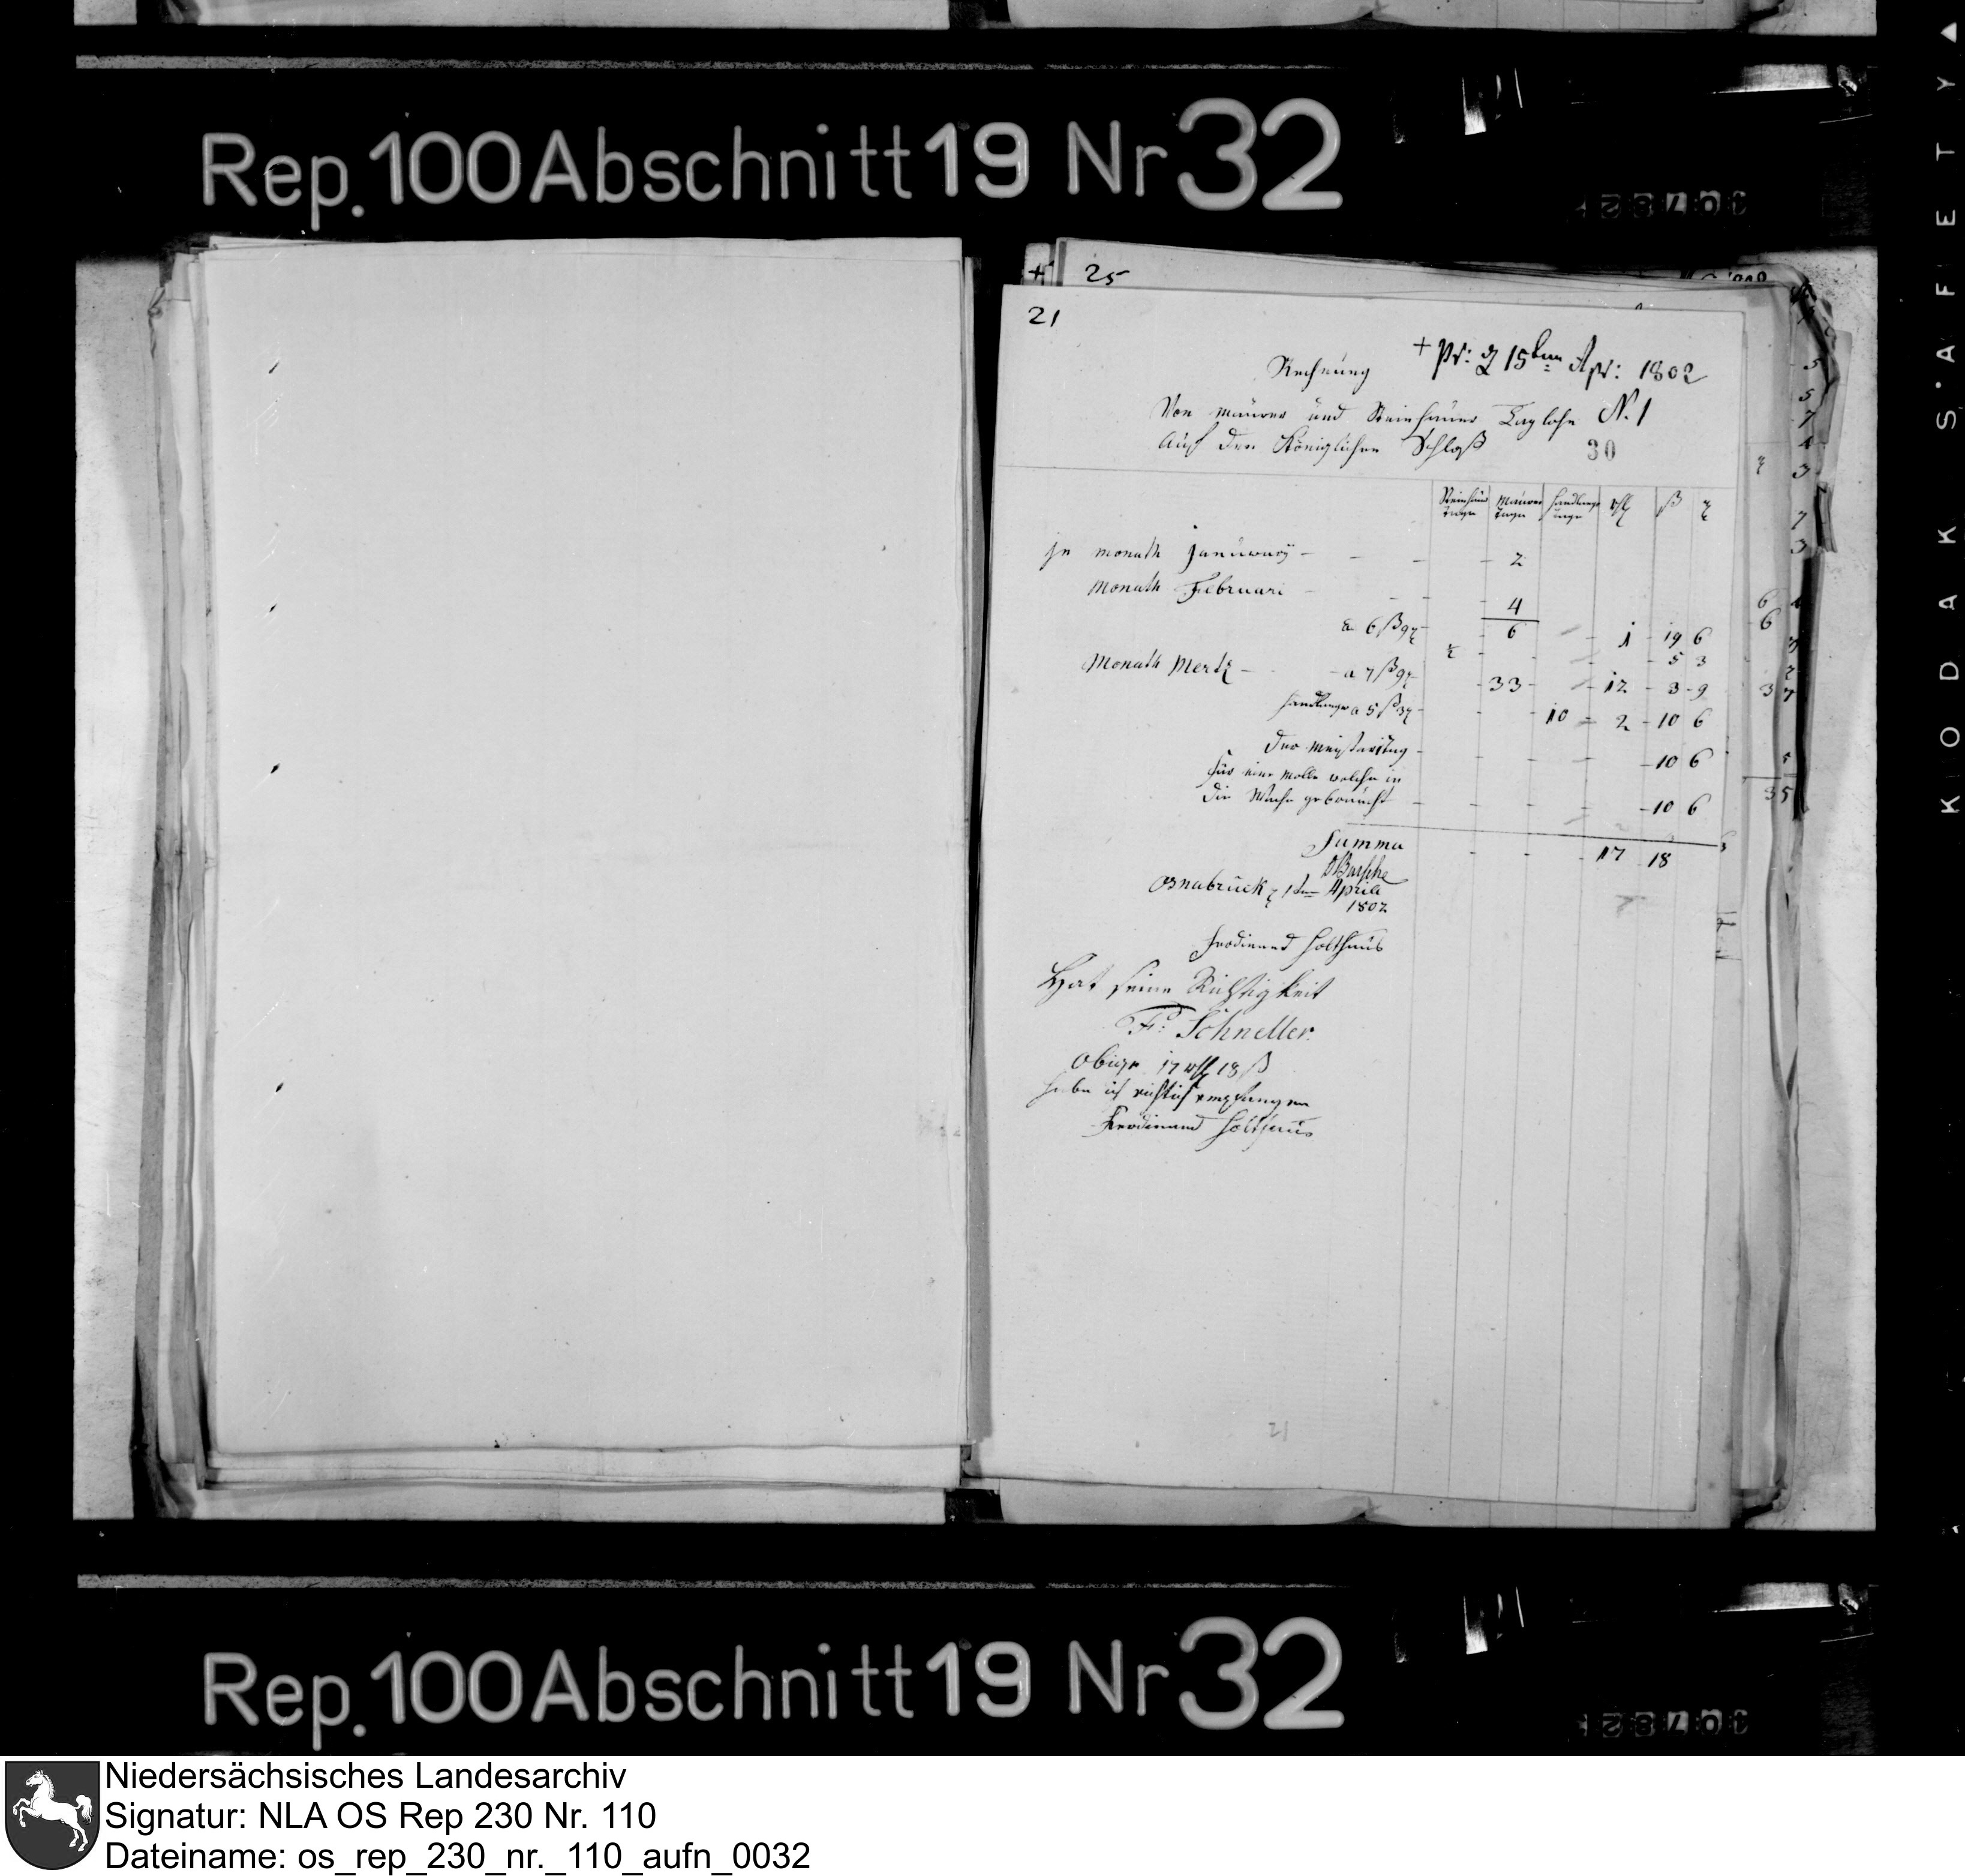 Rep. 100 Abschnitt 19 Nr 32
25
21
+ Pr: d 15ten Apr: 1802
Rechnung
Von maürer und Steinhauer Taglohn N. 1
Auf den Königlichen Schloß
30
Steinhauer Tage Maürer Tage Handlanger Tage rthl ß d
jn monath Januwarÿ - - - - 2
Monath Februari - - - - 4
a 6 ß 9 d - - 6 - 1 - 19 6
- - - 5 3
Monath Mertz - - a 7 ß 9 d - 33 - - 12 - 3 - 9
Handlanger a 5 ß 3 d - - - 10 - 2 - 10 6
der meistertag - - - - - 10 6
für eine Molle welche in
die Wache gebraucht - - - - - 10 6
Summa - - - 17 18
Osnabrück d 1ten Aprill
1802
Ferdinand Holthaus
Hat seine Richtigkeit
F: Schneller.
Obige 17 rthl 18 ß
habe ich richtich empfangen
Ferdinand Holthaus
21
Rep. 100 Abschnitt 19 Nr 32
KODAK S'AFETY ▲
Niedersächsisches Landesarchiv
Signatur: NLA OS Rep 230 Nr. 110
Dateiname: os_rep_230_nr._110_aufn_0032